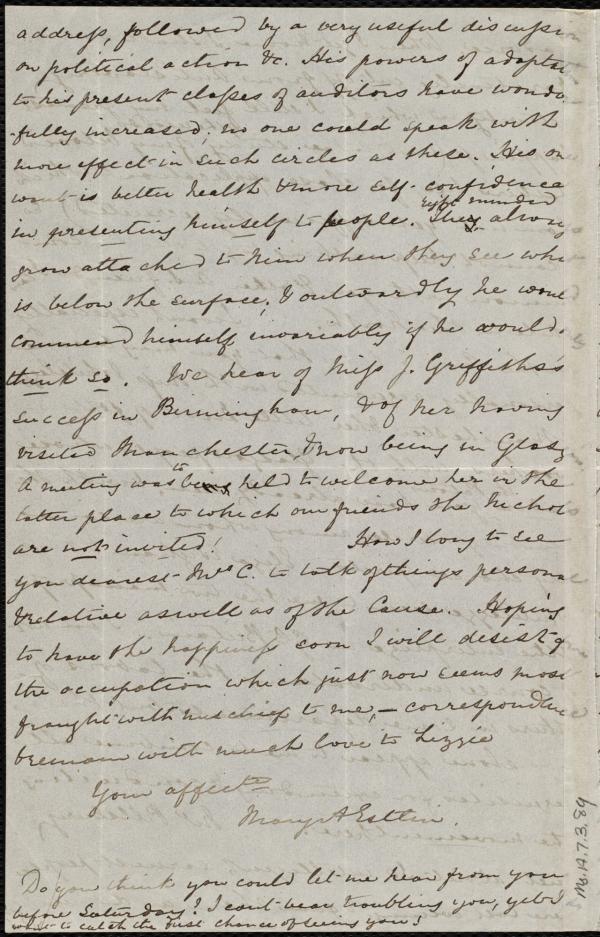 address, followed by a very useful discussion
on political action &c. His powers of adapta
to his present classes of auditors have wonder
-fully increased; no one could speak with
more effect in such circles as these. His on
want is better health & more self-confidence
in presenting himself to people. They right minded always
grow attached to him when they see wha
is below the surface, & outwardly he would
commend himself invariably if he would
think so. We hear of Miss J. Griffiths's
success in Birmingham, & of her having
visited Manchester, & now being in Glasg
A meeting was to be held to welcome her in the
latter place to which our friends the Nichol
are not invited! How I long to see
you dearest Mrs C. to talk of things personal
& relative as well as of the Cause. Hoping
to have the happiness soon I will desist f
the occupation which just now seems most
fraught with mischief to me, — correspondence
& remain with much love to Lizzie
Your affecte
Mary A Estlin.
Do you think you could let me hear from you
before Saturday? I can't bear troubling you, yet I
want to catch the first chance of seeing you!
Ms. A. 7. 3. 89